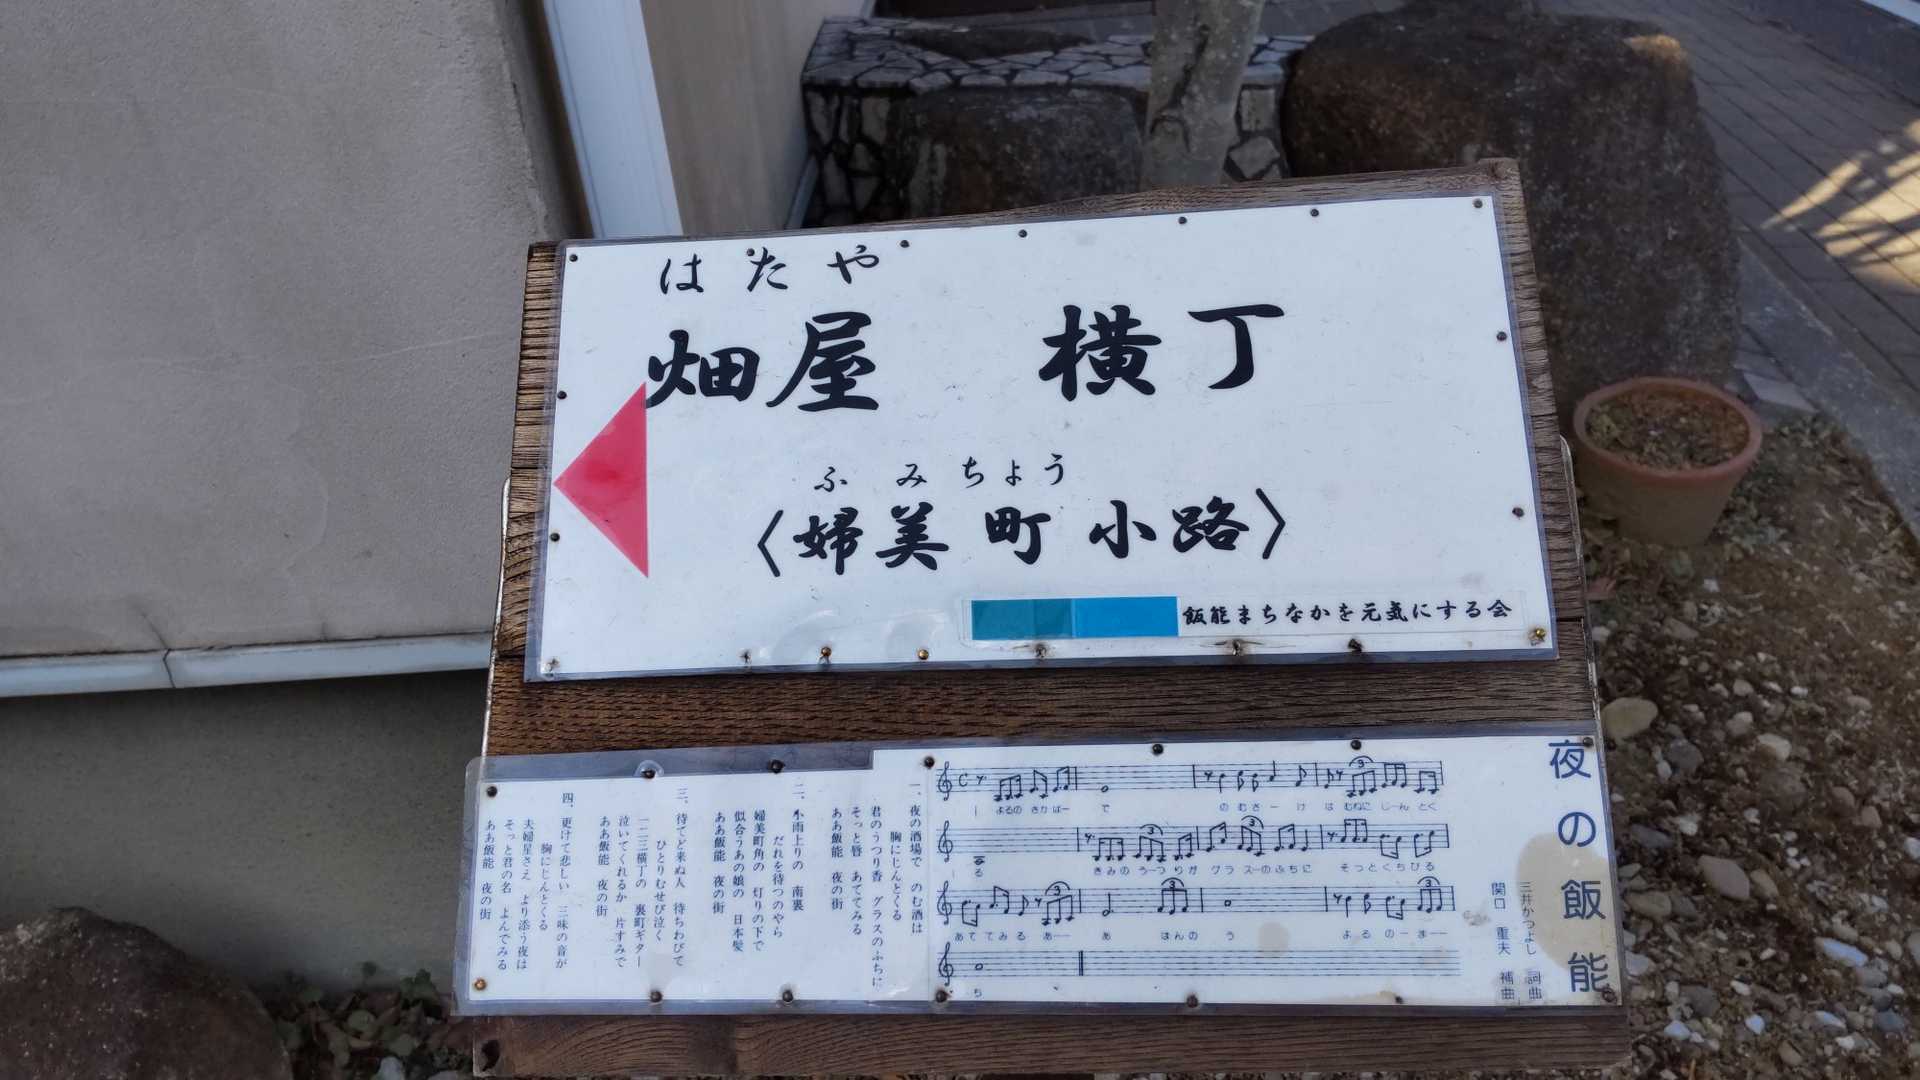 はたや
畑屋 横丁
ふみちょう
〈婦美町 小路〉
飯能まちなかを元気にする会
夜の飯能
三井かつよし 詞曲
関口 重夫 補曲
よるの さかばー で のむさー け は むねに じーん とく
る きみの うーつ りが グラ スーのふちに そっとくちびる
あてて みる あー あ はんの う よる のーまー
ち
一、夜の酒場で のむ酒は
胸にじんとくる
君のうつり香 グラスのふちに
そっと唇 あててみる
ああ飯能 夜の街
二、小雨上りの 南裏
だれを待つのやら
婦美町角の 灯りの下で
似合うあの娘の 日本髪
ああ飯能 夜の街
三、待てど来ぬ人 待ちわびて
ひとりむせび泣く
一二三横丁の 裏町ギター
泣いてくれるか 片すみで
ああ飯能 夜の街
四、更けて悲しい 三味の音が
胸にじんとくる
夫婦星さえ より添う夜は
そっと君の名 よんでみる
ああ飯能 夜の街